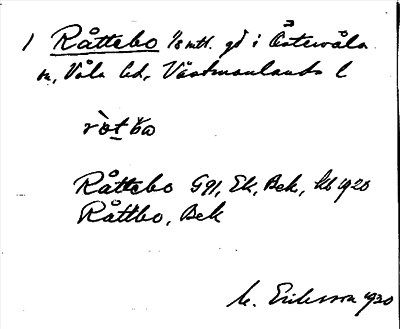 1 Råttebo 1/8 mtl. gd i Östervåla
sn, Våla hd, Västmanlands l
Råttebo GA, Ek, Bek, kb 1920
Råttbo, Bek
M. Eriksson 1920